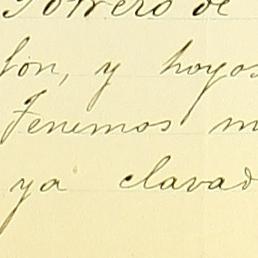 Potrero de
lón, y hoyos
Tenemos m
ya clavad